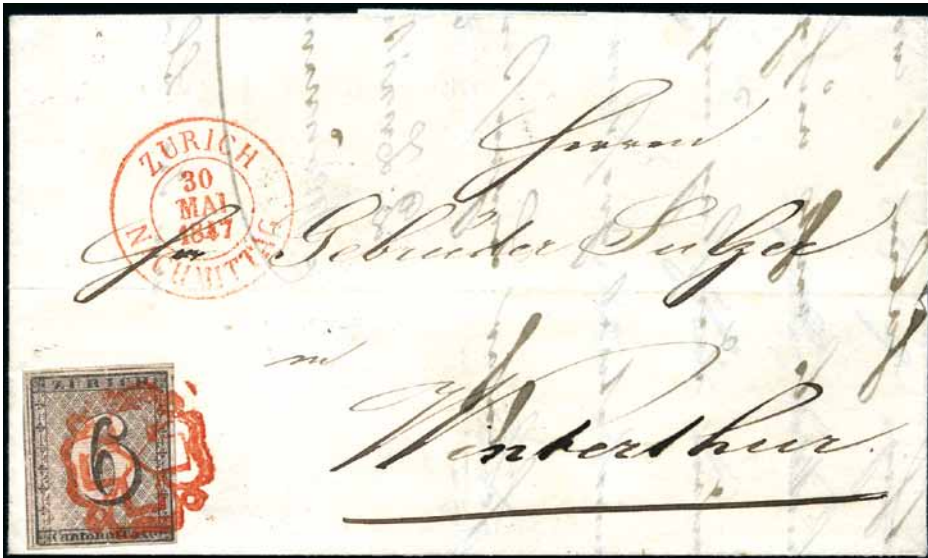 ZURICH
30
MAI
1847
NACHMITTAG
Herren
Gebrüder Sulzer
in
Winterthur.
ZÜRICH
6
Cantonal-Taxe.